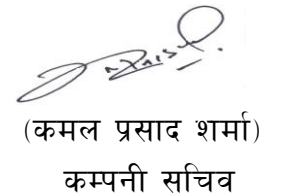 (कमल प्रसाद शर्मा)
कम्पनी सचिव